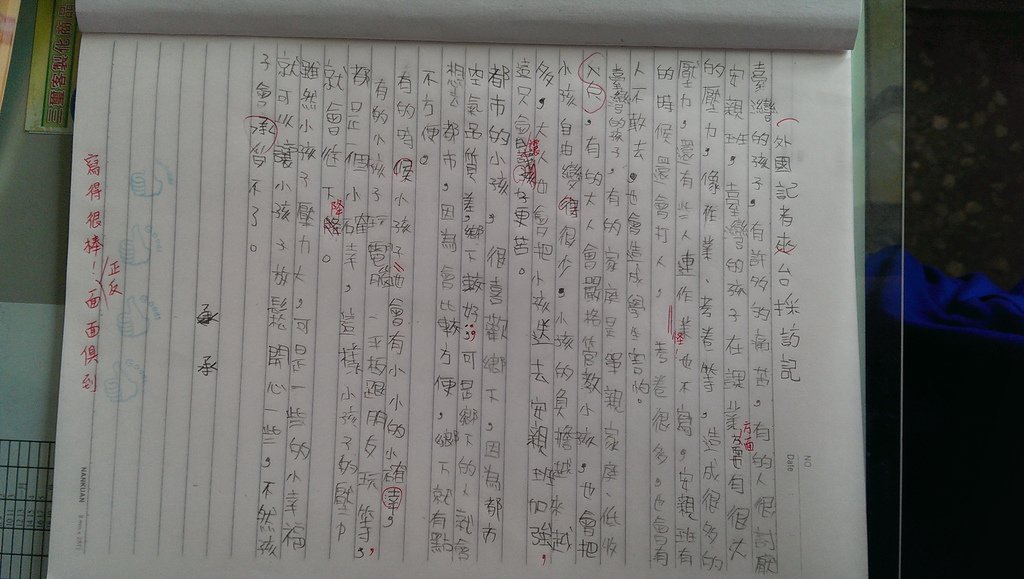 外國記者來台採訪記
臺灣的孩子,有許多的痛苦,有的人很討厭
安親班,臺灣的孩子在課業方面也有很大
的壓力,像作業、考卷等,造成很多的
壓力,還有些人連作業也不寫,安親班有
的時候還會打人,考卷很多,也會有
人不敢去,也會造成學生害怕。
臺灣的孩子,有的家庭是單親家庭、低收
入戶,有的大人會嚴格管教小孩,也會把
小孩自由變得很少,小孩的負擔越來越
多,大人也會把小孩送去安親班加強,
這只會讓孩子更苦。
都市的小孩,很喜歡鄉下,因為都市
空氣品質差,鄉下較好;可是鄉下的人就會
想去都市,因為會比較方便,鄉下就有點
不方便。
有的時候小孩子也會有小小的確幸,
有的小孩子玩電腦、平板跟朋友玩等,
都是一個小確幸,這樣小孩子的壓力
就會往下降。
雖然小孩子壓力大,可是一些的小幸福
就可以讓小孩子放鬆開心一些,不然孩
子會承受不了。
承
承
寫得很棒!正反面面俱到
NO
Date
NANKUAN